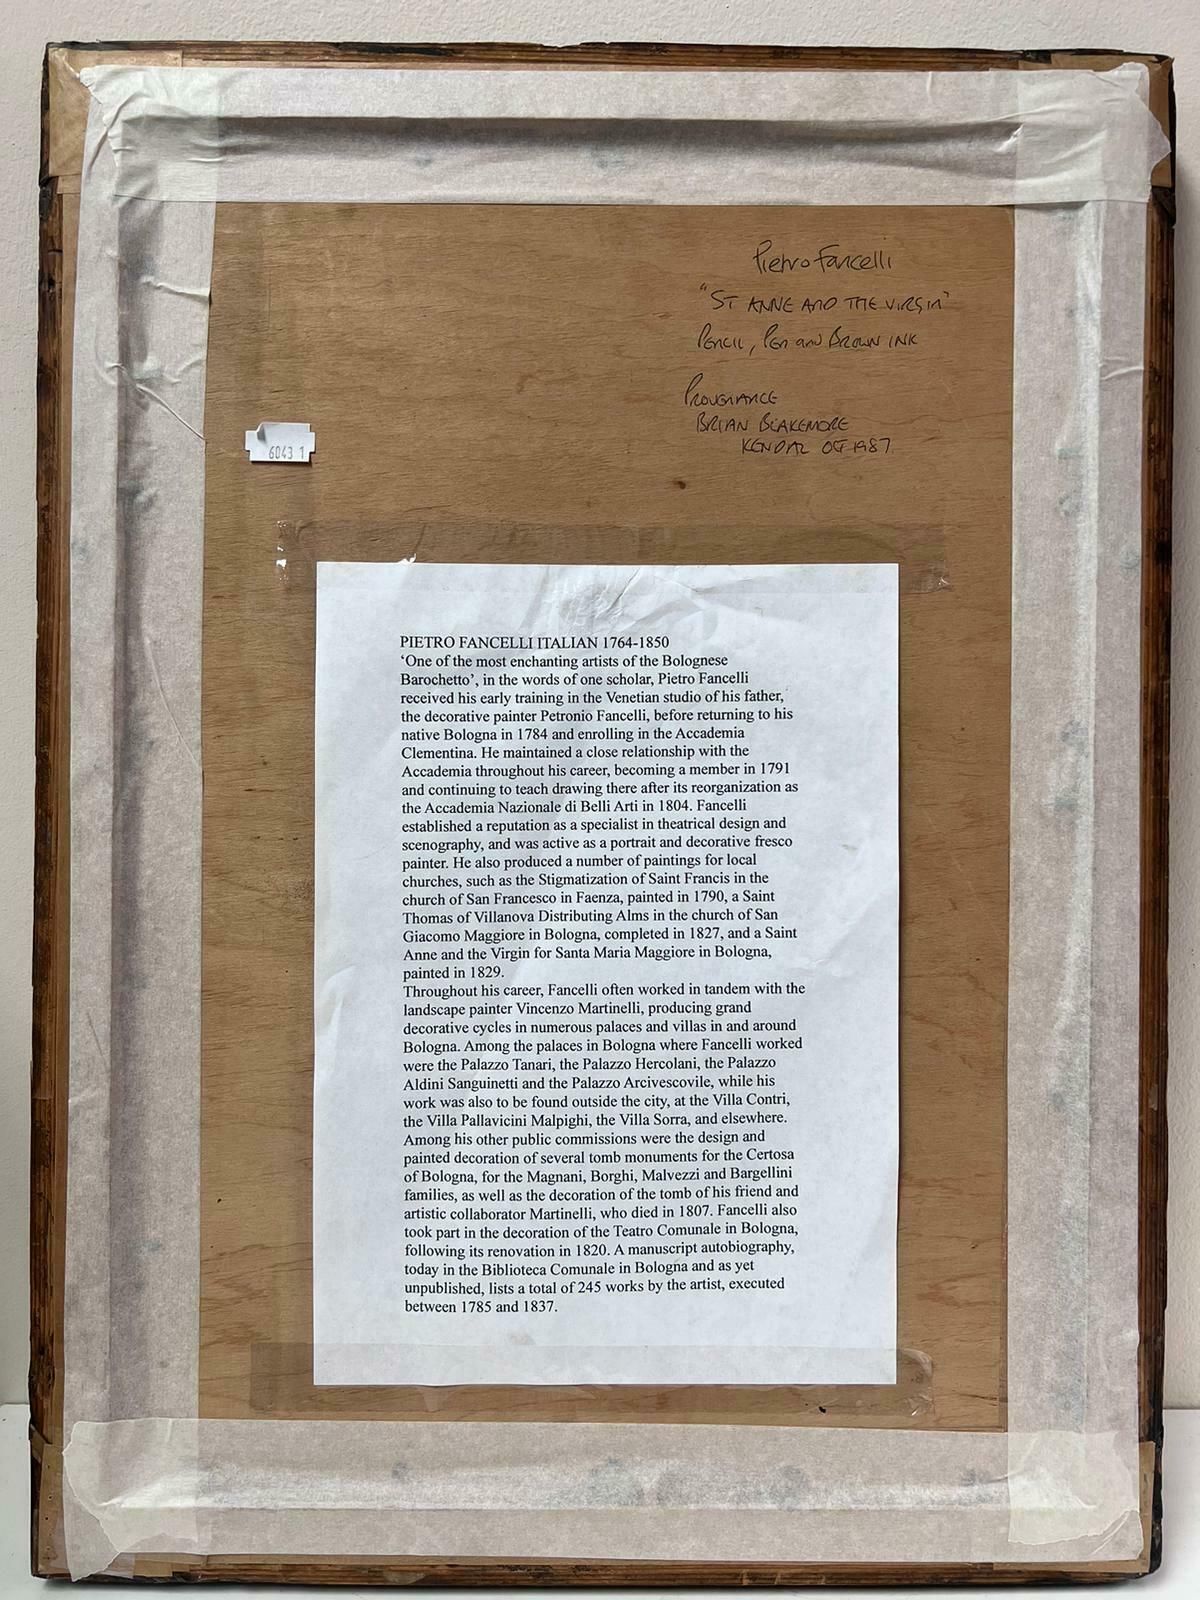 Pietro Fancelli
"ST ANNE AND THE VIRGIN"
PENCIL, PEN AND BROWN INK
PROVENANCE
BRIAN BLAKEMORE
KENDAL OCT 1987
6043 1
PIETRO FANCELLI ITALIAN 1764-1850
‘One of the most enchanting artists of the Bolognese
Barochetto’, in the words of one scholar, Pietro Fancelli
received his early training in the Venetian studio of his father,
the decorative painter Petronio Fancelli, before returning to his
native Bologna in 1784 and enrolling in the Accademia
Clementina. He maintained a close relationship with the
Accademia throughout his career, becoming a member in 1791
and continuing to teach drawing there after its reorganization as
the Accademia Nazionale di Belli Arti in 1804. Fancelli
established a reputation as a specialist in theatrical design and
scenography, and was active as a portrait and decorative fresco
painter. He also produced a number of paintings for local
churches, such as the Stigmatization of Saint Francis in the
church of San Francesco in Faenza, painted in 1790, a Saint
Thomas of Villanova Distributing Alms in the church of San
Giacomo Maggiore in Bologna, completed in 1827, and a Saint
Anne and the Virgin for Santa Maria Maggiore in Bologna,
painted in 1829.
Throughout his career, Fancelli often worked in tandem with the
landscape painter Vincenzo Martinelli, producing grand
decorative cycles in numerous palaces and villas in and around
Bologna. Among the palaces in Bologna where Fancelli worked
were the Palazzo Tanari, the Palazzo Hercolani, the Palazzo
Aldini Sanguinetti and the Palazzo Arcivescovile, while his
work was also to be found outside the city, at the Villa Contri,
the Villa Pallavicini Malpighi, the Villa Sorra, and elsewhere.
Among his other public commissions were the design and
painted decoration of several tomb monuments for the Certosa
of Bologna, for the Magnani, Borghi, Malvezzi and Bargellini
families, as well as the decoration of the tomb of his friend and
artistic collaborator Martinelli, who died in 1807. Fancelli also
took part in the decoration of the Teatro Comunale in Bologna,
following its renovation in 1820. A manuscript autobiography,
today in the Biblioteca Comunale in Bologna and as yet
unpublished, lists a total of 245 works by the artist, executed
between 1785 and 1837.